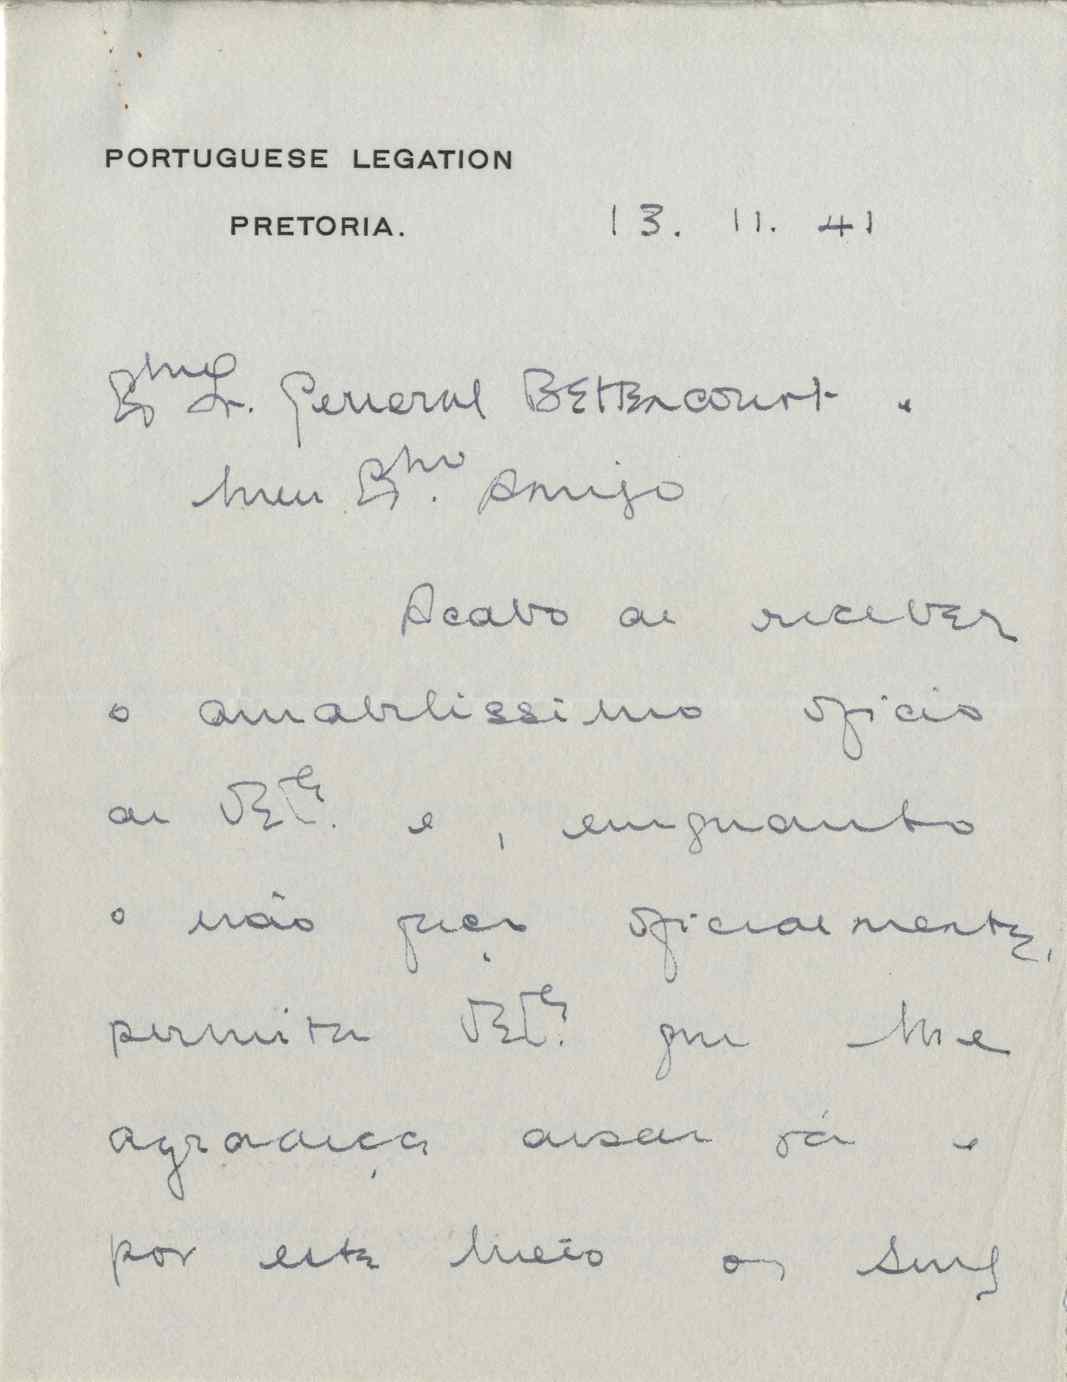 PORTUGUESE LEGATION
PRETORIA.
13. 11. 41
Exmo Sr. General Bettencourt.
Meu Exmo. Amigo
Acabo de receber
o amabilissimo oficio
de VExcia. e, emquanto
o não faço oficialmente,
permita VExcia. que lhe
agradeça desde já e
por este meio os seus